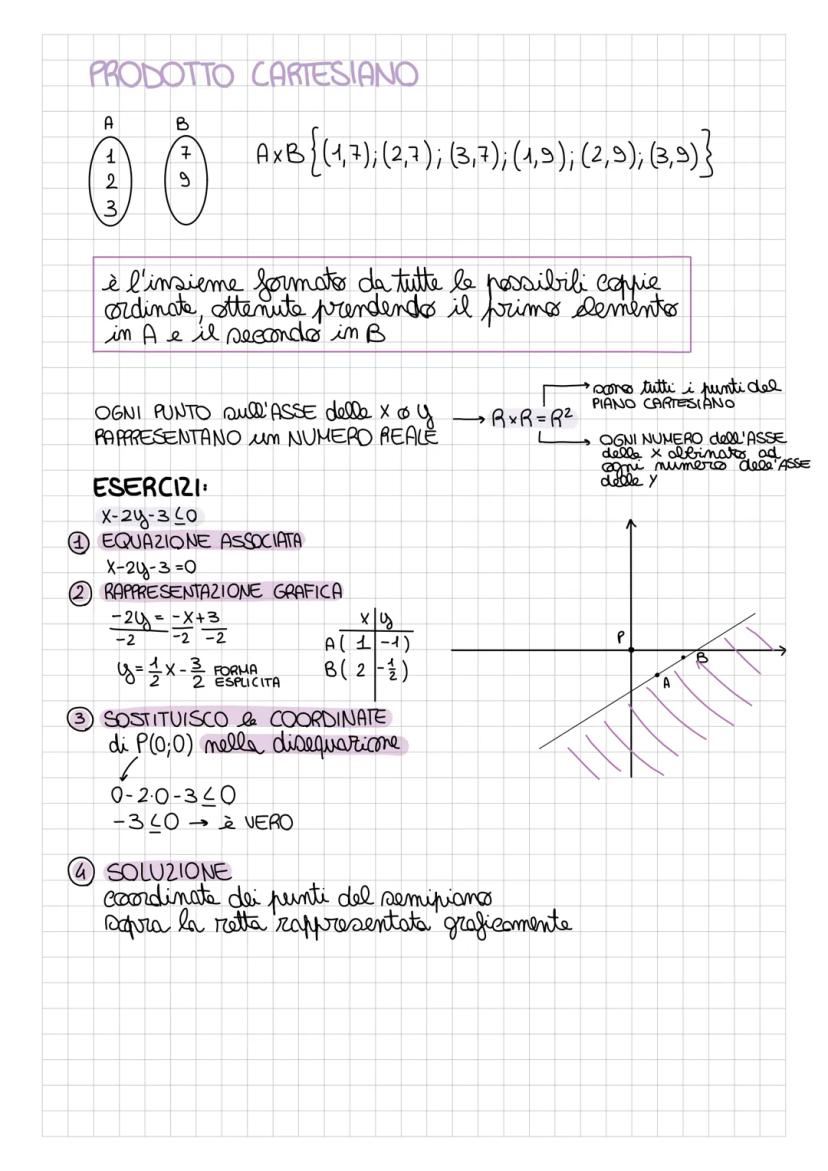 PRODOTTO CARTESIANO
A B
1 7
2 9
3
AxB {(1,7); (2,7); (3,7); (1,9); (2,9); (3,9)}
è l'insieme formato da tutte le possibili coppie
ordinate, ottenute prendendo il primo elemento
in A e il secondo in B
OGNI PUNTO sull'ASSE delle x o y
RAPPRESENTANO un NUMERO REALE
→ R×R = R²
→ sono tutti i punti del
PIANO CARTESIANO
→ OGNI NUMERO dell'ASSE
delle x abbinato ad
ogni numero dell'ASSE
delle y
ESERCIZI:
x-2y-3 ≤0
1 EQUAZIONE ASSOCIATA
x-2y-3=0
2 RAPPRESENTAZIONE GRAFICA
-2y/-2 = -x/-2 +3/-2
y = 1/2 x - 3/2 FORMA
ESPLICITA
x | y
A( 1 | -1)
B( 2 | -1/2)
P
B
A
3 SOSTITUISCO le COORDINATE
di P(0;0) nella disequazione
0-2·0-3 ≤0
-3 ≤0 → è VERO
4 SOLUZIONE
coordinate dei punti del semipiano
sopra la retta rappresentata graficamente